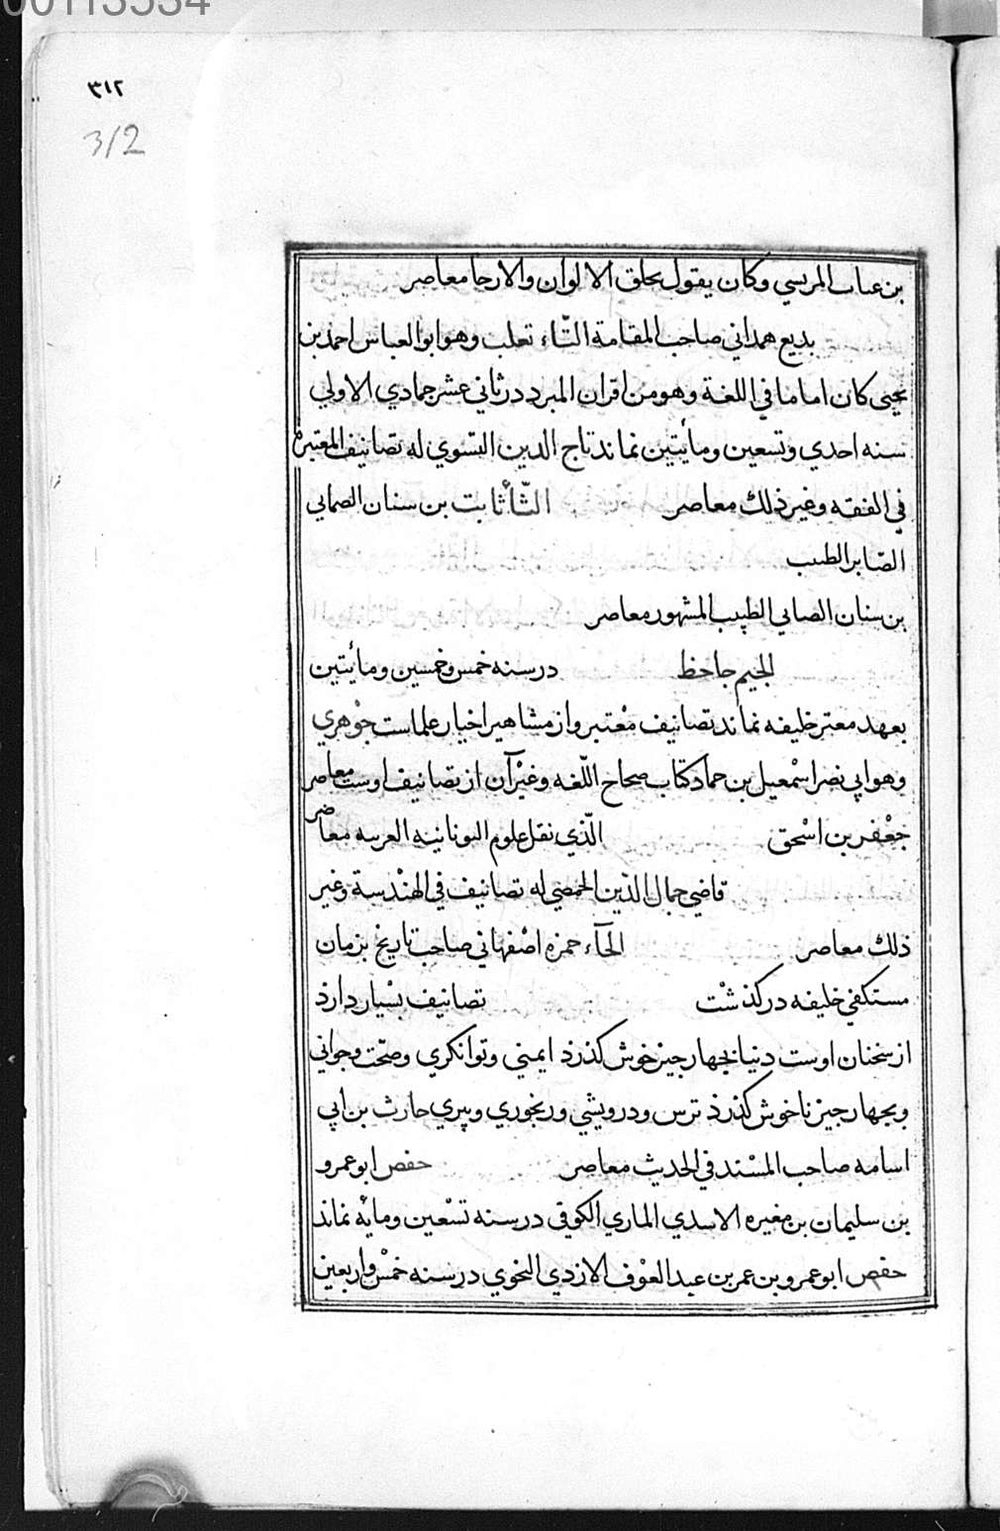 00113534
٣١٢
312
بن عىاب المريسي وكان يقول بحلق الالوان والارجا معاصر
بديع همداني صاحب المقامة التّاء تعلب وهو ابو العباس احمد بن
يحيى كان اماما في اللغة وهو من اقران المبرد در ثاني عشر جمادي الاولي
سنه احدي وتسعين ومأيتين نماند تاج الدين التسنوي له تصانيف المعتبرة
في الفقه وغير ذلك معاصر الثّأ ثابت بن سنان الصابي
الصّابر الطىىب
بن سنان الصابي الطبيب المشهور معاصر
الجيم جاحظ در سنه خمس وخمسين ومأيتين
بعهد معتز خليفه نماند تصانيف معتبر واز مشاهير اخيار علماست جوهري
وهو ابي نصر اسمعيل بن حماد كتاب صحاح اللّغه وغير آن از تصانيف اوست معاصر
جعفر بن اسحق الّذي نقل علوم اليونانيه العربيه معاصر
قاضي جمال الدّين الحمصي له تصانيف في الهندسة وغير
ذلك معاصر الحآء حمزه اصفهاني صاحب تاريخ بزمان
مستكفي خليفه در كذشت تصانيف بسيار دارذ
از سخنان اوست دنيا بجهار جيز خوش كذرذ ايمني وتوانكري وصحّت وجواني
وبجهار جيز ناخوش كذرذ ترس ودرويشي ورنجوري وپيري حارث بن ابي
اسامه صاحب المسند في الحديث معاصر حفص ابو عمرو
بن سليمان بن مغيره الاسدي الماري الكوفي در سنه تسعين ومايه نماند
حفص ابو عمرو بن عمر بن عبد العوف الازدي النحوي در سنه خمس واربعين